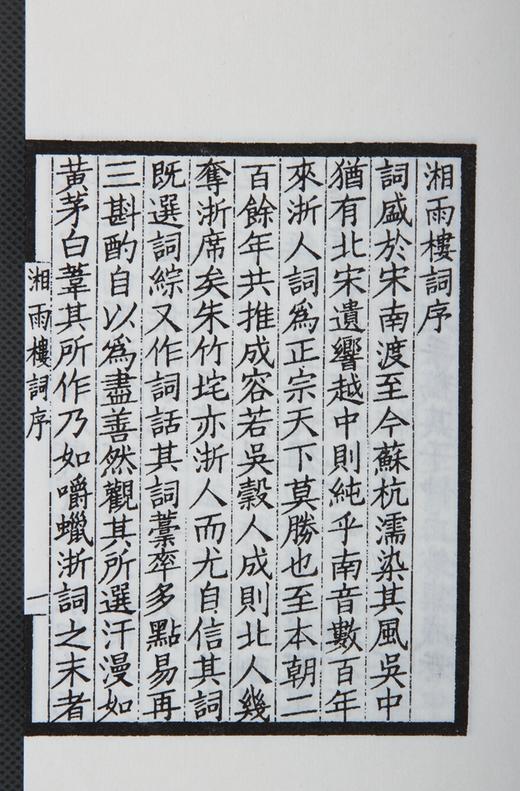 湘雨樓詞序
詞盛於宋南渡至今蘇杭濡染其風吳中
猶有北宋遺響越中則純乎南音數百年
來浙人詞為正宗天下莫勝也至本朝二
百餘年共推成容若吳穀人成則北人幾
奪浙席矣朱竹垞亦浙人而尤自信其詞
既選詞綜又作詞話其詞藁率多點易再
三斟酌自以為盡善然觀其所選汗漫如
黃茅白葦其所作乃如嚼蠟浙詞之末者
湘雨樓詞序
一